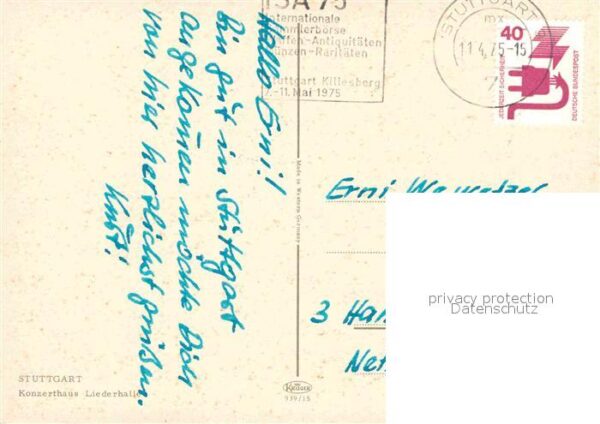 ISA 75
Internationale
Sammlerbörse
Waffen-Antiquitäten
Münzen-Raritäten
Stuttgart Killesberg
7.-11. Mai 1975
STUTTGART
mx
11.4.75-15
7
40
JEDERZEIT SICHERHEIT
DEUTSCHE BUNDESPOST
Hallo Erni!
Bin gut in Stuttgart
angekommen möchte Dich
von hier herzlichst grüßen.
Kurt!
Made in Western Germany
Erni
3 Han
privacy protection
Datenschutz
STUTTGART
Konzerthaus Liederhalle
Krüger
939/15